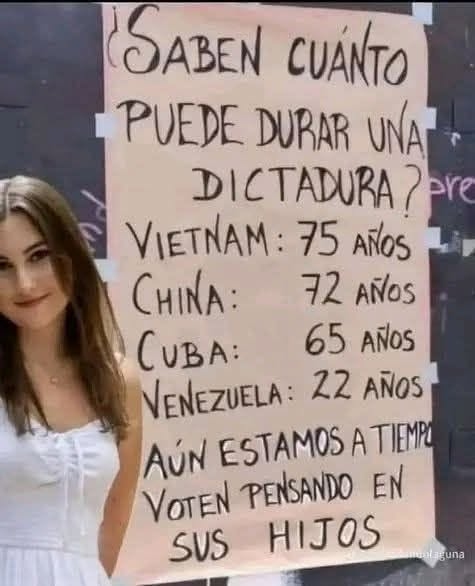 ¿SABEN CUÁNTO
PUEDE DURAR UNA
DICTADURA?
VIETNAM: 75 AÑOS
CHINA: 72 AÑOS
CUBA: 65 AÑOS
VENEZUELA: 22 AÑOS
AÚN ESTAMOS A TIEMPO
VOTEN PENSANDO EN
SUS HIJOS